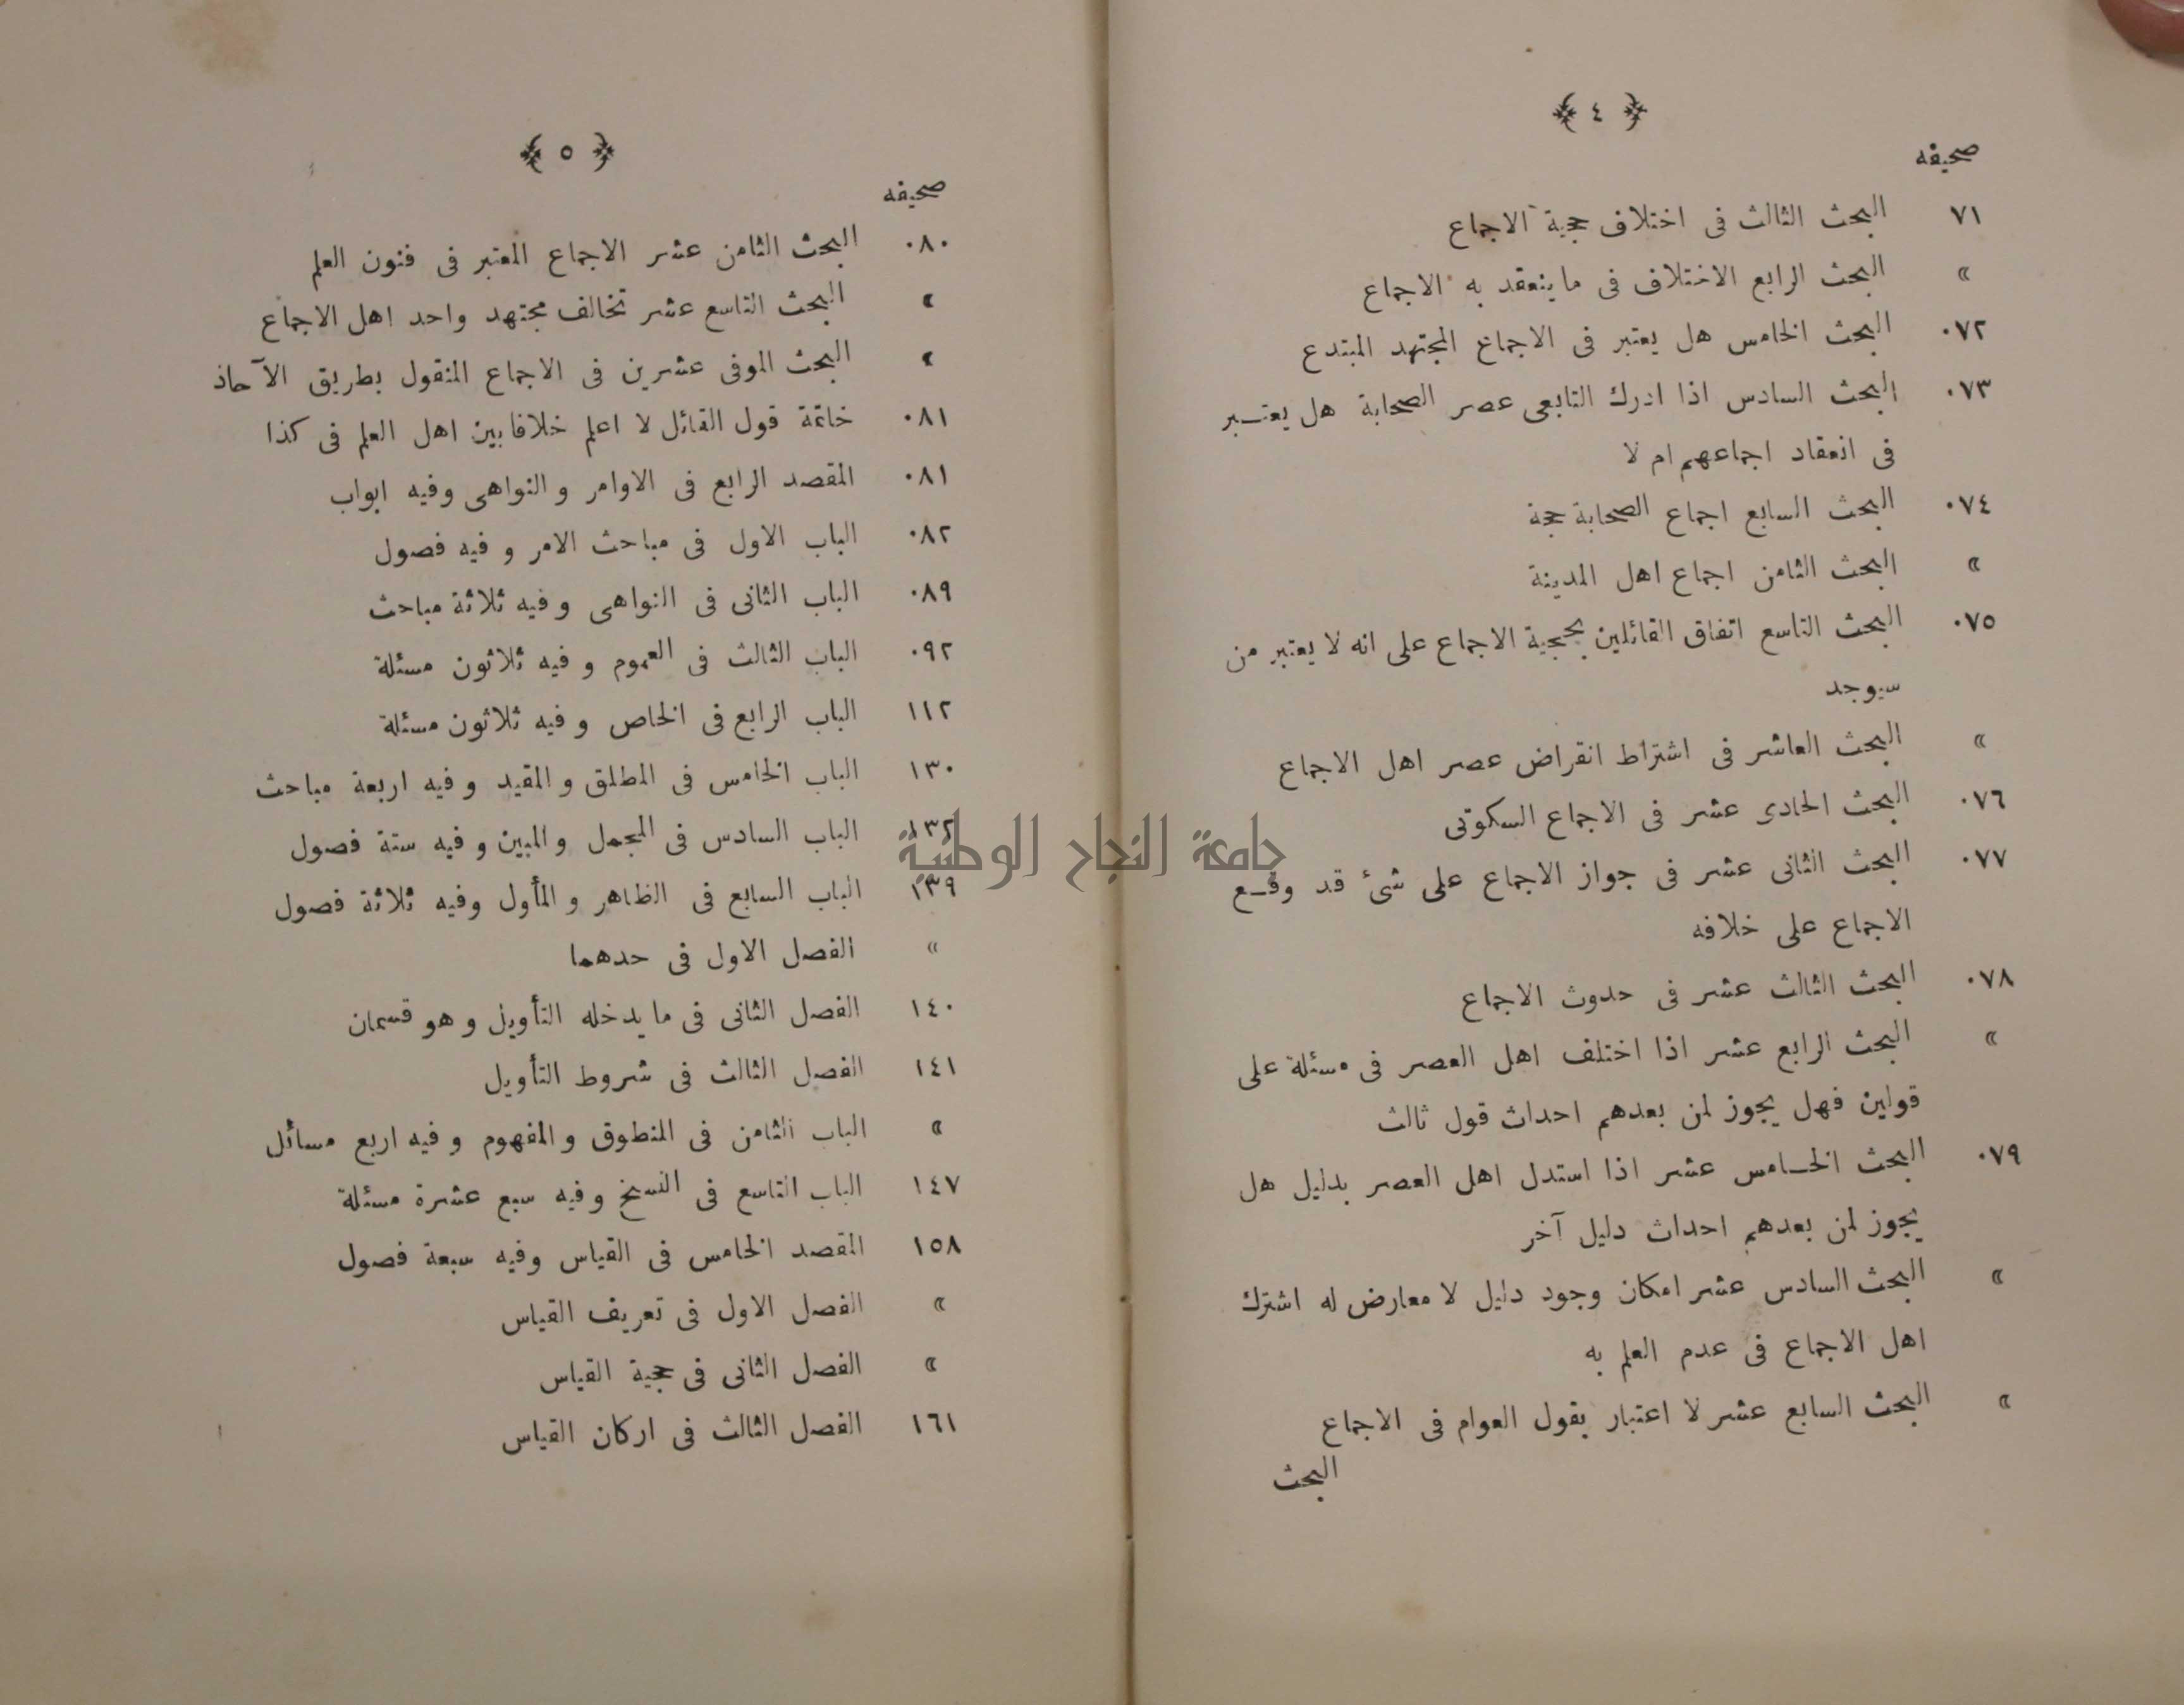 ﴿ ٤ ﴾
صحيفه
٧١ البحث الثالث فى اختلاف حجية الاجماع
» البحث الرابع الاختلاف فى ماينعقد به الاجماع
٠٧٢ البحث الخامس هل يعتبر فى الاجماع المجتهد المبتدع
٠٧٣ البحث السادس اذا ادرك التابعى عصر الصحابة هل يعتبر
فى انعقاد اجماعهم ام لا
٠٧٤ البحث السابع اجماع الصحابة حجة
» البحث الثامن اجماع اهل المدينة
٠٧٥ البحث التاسع اتفاق القائلين بحجية الاجماع على انه لا يعتبر من
سيوجد
» البحث العاشر فى اشتراط انقراض عصر اهل الاجماع
٠٧٦ البحث الحادى عشر فى الاجماع السكوتى
٠٧٧ البحث الثانى عشر فى جواز الاجماع على شئ قد وقع
الاجماع على خلافه
٠٧٨ البحث الثالث عشر فى حدوث الاجماع
» البحث الرابع عشر اذا اختلف اهل العصر فى مسئلة على
قولين فهل يجوز لمن بعدهم احداث قول ثالث
٠٧٩ البحث الخامس عشر اذا استدل اهل العصر بدليل هل
يجوز لمن بعدهم احداث دليل آخر
» البحث السادس عشر امكان وجود دليل لا معارض له اشترك
اهل الاجماع فى عدم العلم به
» البحث السابع عشر لا اعتبار بقول العوام فى الاجماع
البحث
﴿ ٥ ﴾
صحيفه
٠٨٠ البحث الثامن عشر الاجماع المعتبر فى فنون العلم
» البحث التاسع عشر تخالف مجتهد واحد اهل الاجماع
» البحث الموفى عشرين فى الاجماع المنقول بطريق الآحاد
٠٨١ خاتمة قول القائل لا اعلم خلافا بين اهل العلم فى كذا
٠٨١ المقصد الرابع فى الاوامر والنواهى وفيه ابواب
٠٨٢ الباب الاول فى مباحث الامر وفيه فصول
٠٨٩ الباب الثانى فى النواهى وفيه ثلاثة مباحث
٠٩٢ الباب الثالث فى العموم وفيه ثلاثون مسئلة
١١٢ الباب الرابع فى الخاص وفيه ثلاثون مسئلة
١٣٠ الباب الخامس فى المطلق والمقيد وفيه اربعة مباحث
١٣٢ الباب السادس فى المجمل والمبين وفيه ستة فصول
جامعة النجاح الوطنية
١٣٩ الباب السابع فى الظاهر والمأول وفيه ثلاثة فصول
» الفصل الاول فى حدهما
١٤٠ الفصل الثانى فى ما يدخله التأويل وهو قسمان
١٤١ الفصل الثالث فى شروط التأويل
» الباب الثامن فى المنطوق والمفهوم وفيه اربع مسائل
١٤٧ الباب التاسع فى النسخ وفيه سبع عشرة مسئلة
١٥٨ المقصد الخامس فى القياس وفيه سبعة فصول
» الفصل الاول فى تعريف القياس
» الفصل الثانى فى حجية القياس
١٦١ الفصل الثالث فى اركان القياس